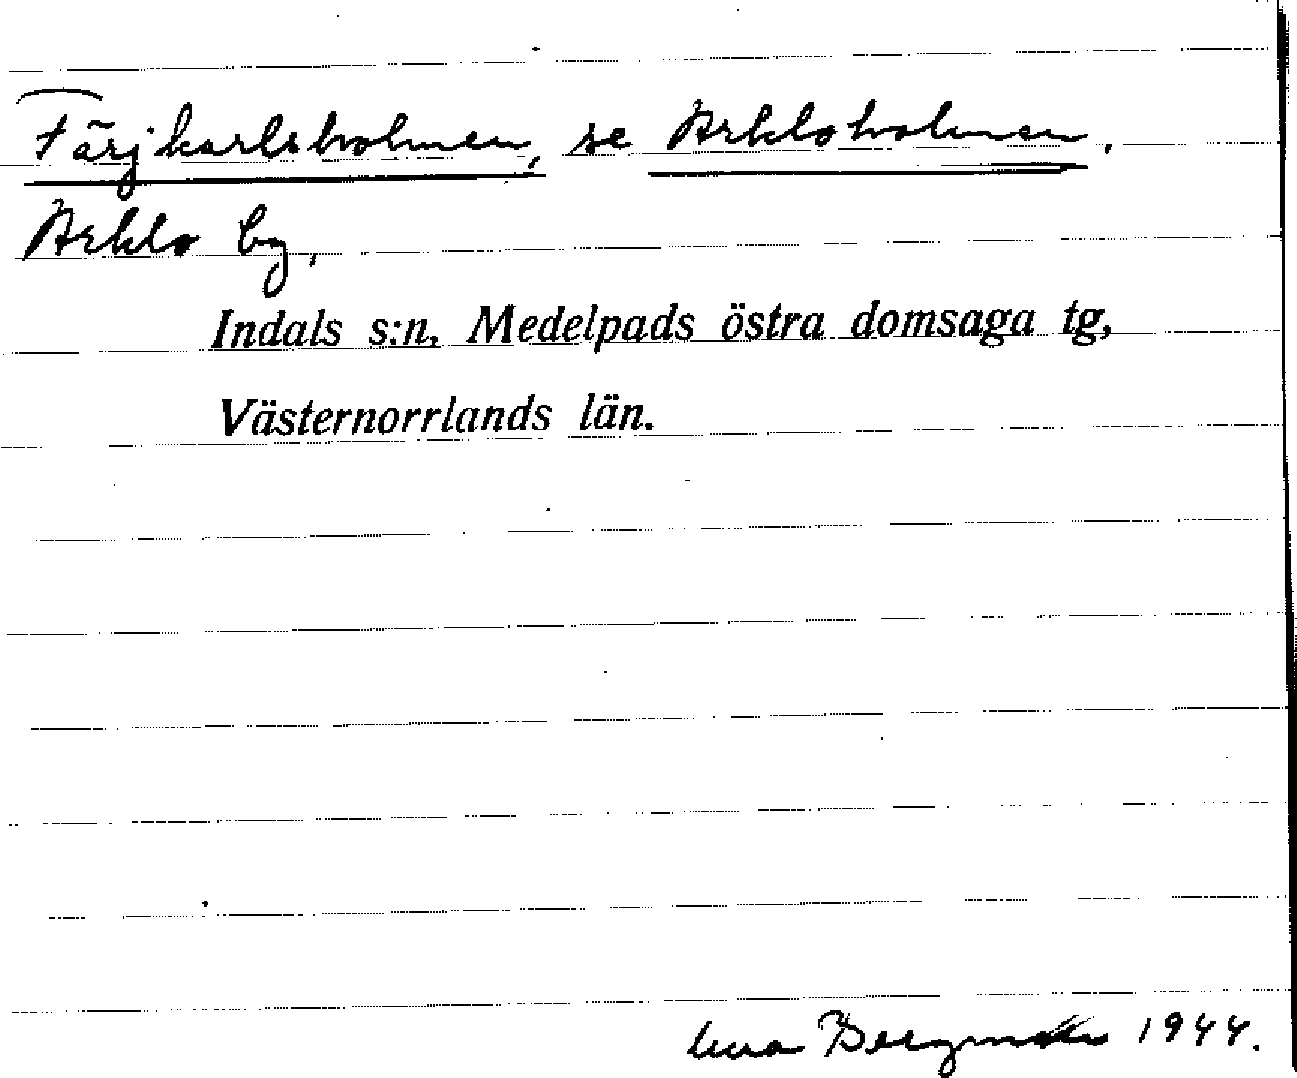 Färjkarlsholmen, se Ärkloholmen.
Ärklo by,
Indals s:n, Medelpads östra domsaga tg,
Västernorrlands län.
1944.